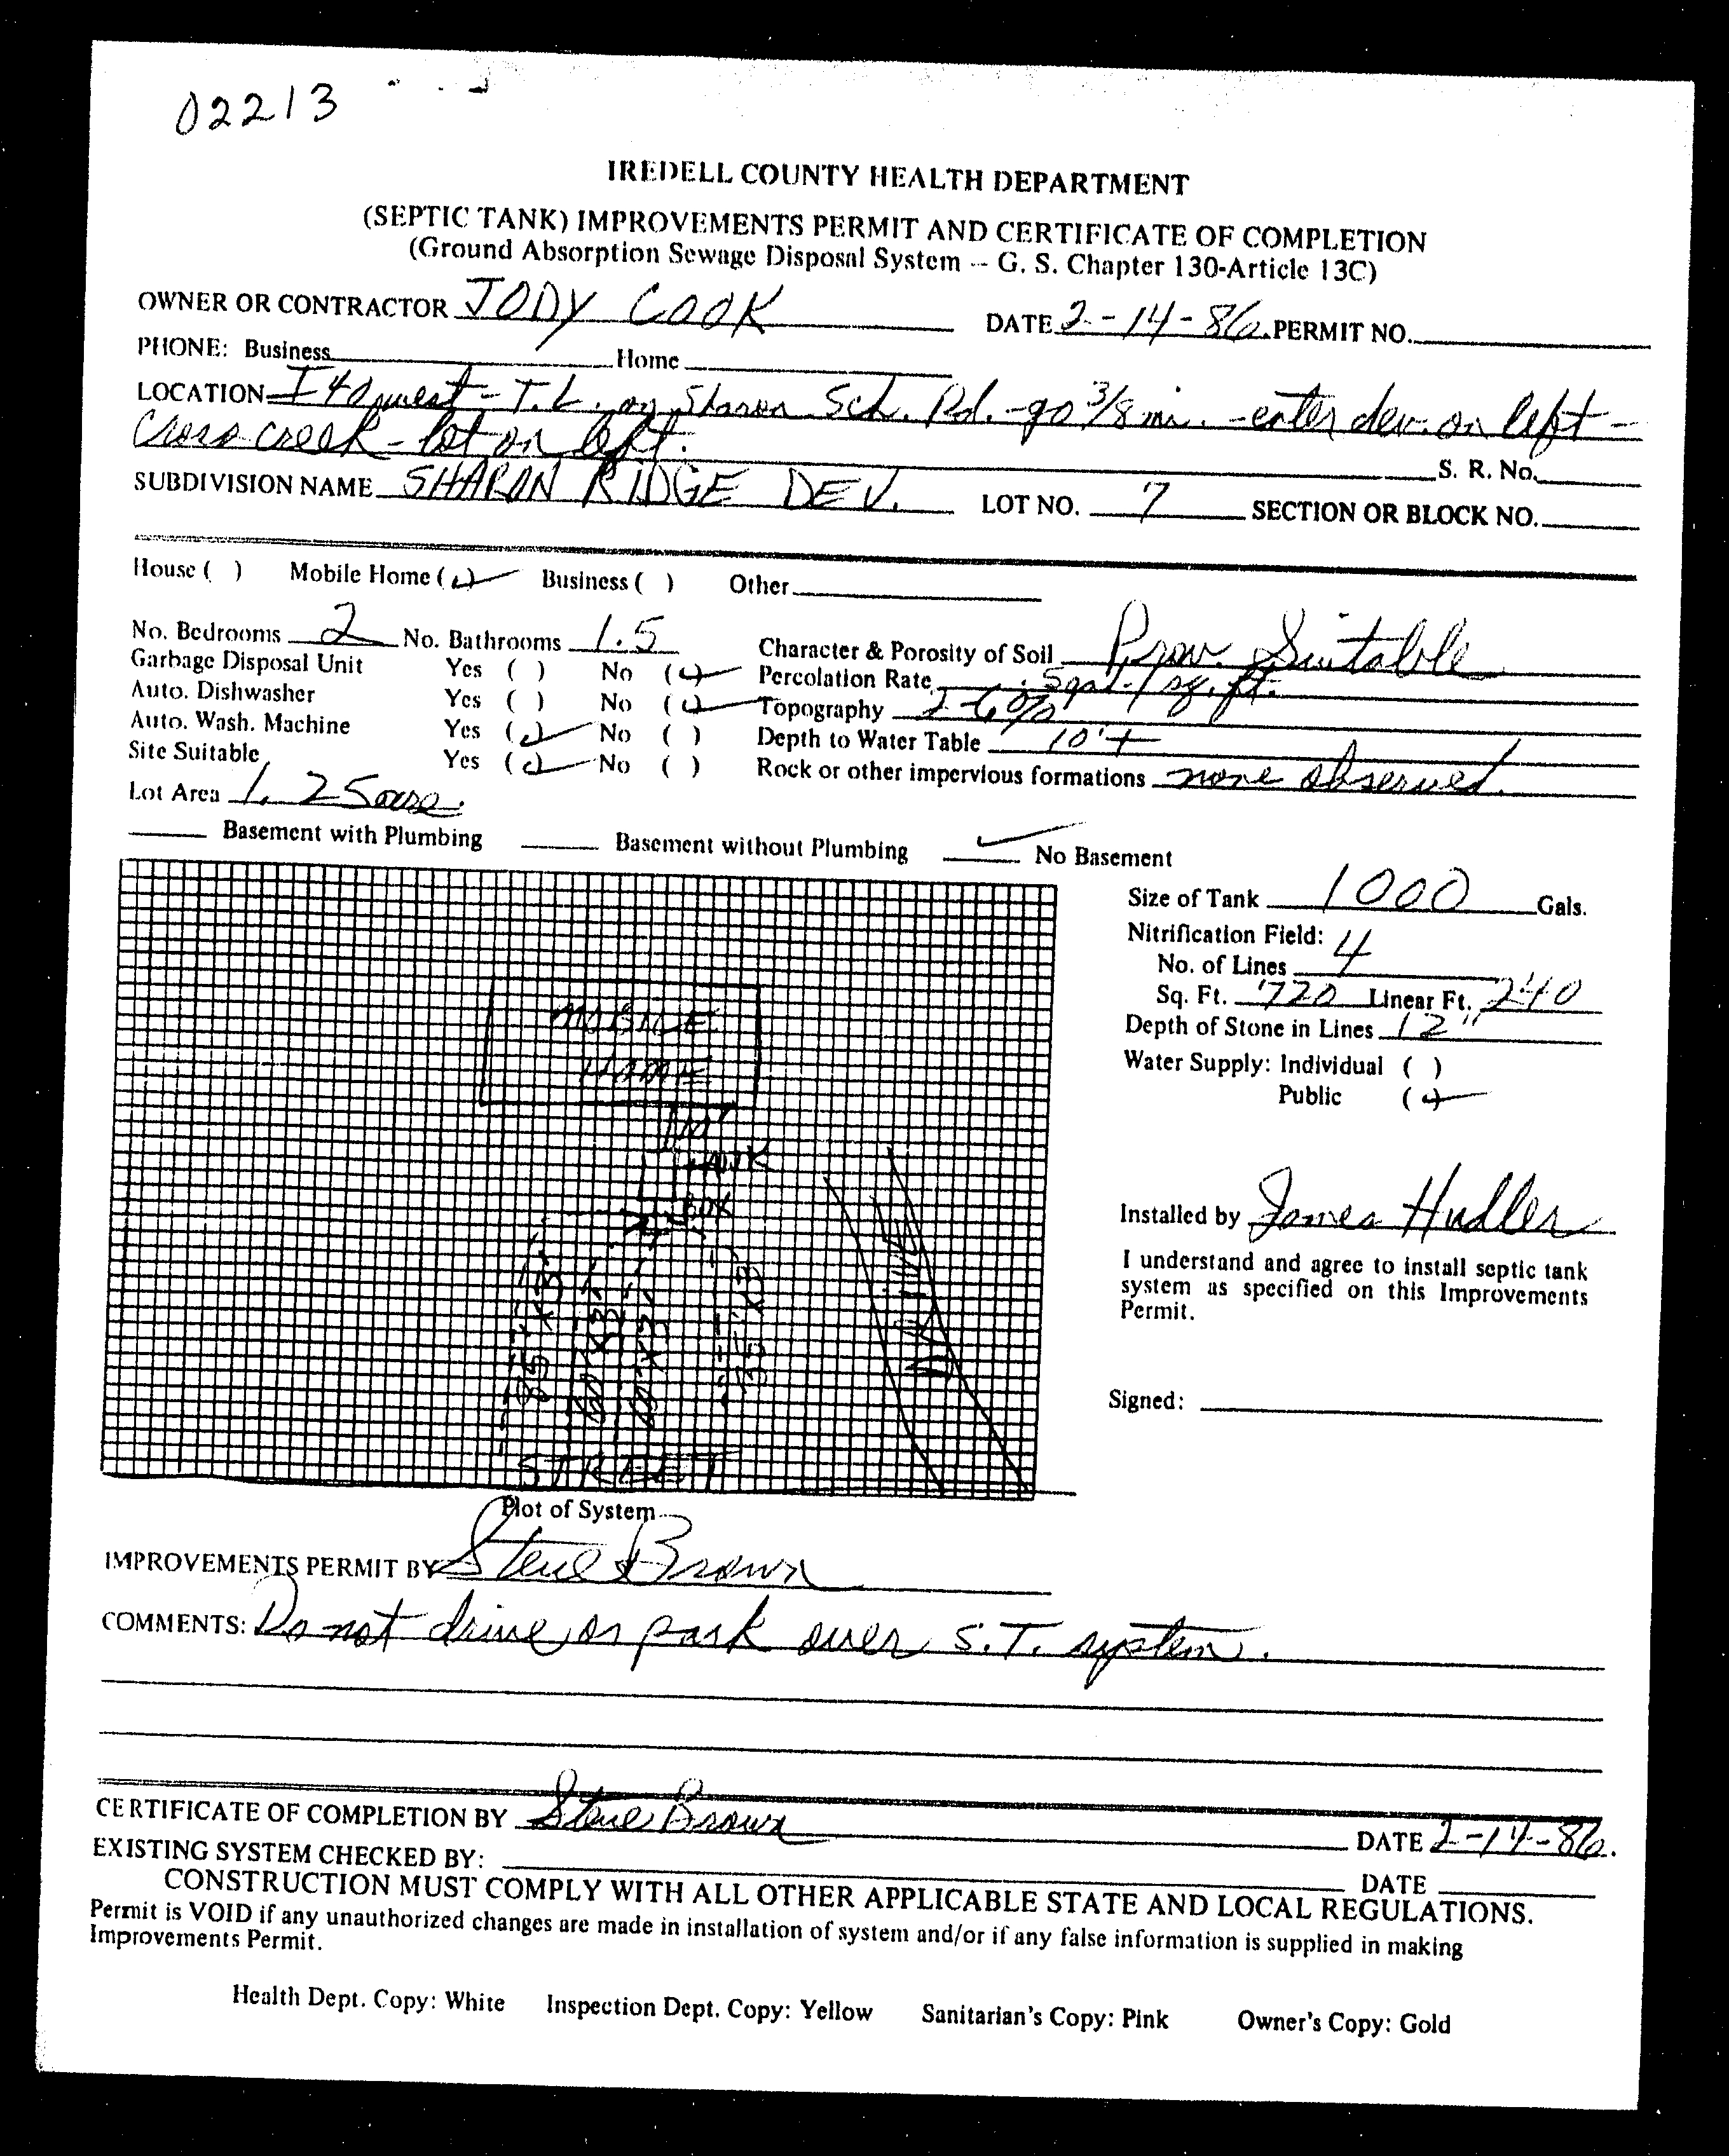 02213
IREDELL COUNTY HEALTH DEPARTMENT
(SEPTIC TANK) IMPROVEMENTS PERMIT AND CERTIFICATE OF COMPLETION
(Ground Absorption Sewage Disposal System -- G. S. Chapter 130-Article 13C)
OWNER OR CONTRACTOR JODY COOK DATE 2-14-86 PERMIT NO.
PHONE: Business Home
LOCATION I 40 west - T.L. on Sharon Sch. Rd. - go 3/8 mi. - enter dev. on left -
Cross creek - lot on left.
S. R. No.
SUBDIVISION NAME SHARON RIDGE DEV. LOT NO. 7 SECTION OR BLOCK NO.
House ( ) Mobile Home (✓) Business ( ) Other
No. Bedrooms 2 No. Bathrooms 1.5 Character & Porosity of Soil Prov. Suitable
Garbage Disposal Unit Yes ( ) No (✓) Percolation Rate .5 gal. / sq. ft.
Auto. Dishwasher Yes ( ) No (✓) Topography 2-6%
Auto. Wash. Machine Yes (✓) No ( ) Depth to Water Table 10'+
Site Suitable Yes (✓) No ( ) Rock or other impervious formations none observed.
Lot Area 1.25 acre.
Basement with Plumbing Basement without Plumbing ✓ No Basement
Size of Tank 1000 Gals.
Nitrification Field:
No. of Lines 4
Sq. Ft. 720 Linear Ft. 240
Depth of Stone in Lines 12"
Water Supply: Individual ( )
Public (✓)
MOBILE
HOME
10'
TANK
BOX
85' x 3'
60' x 3'
60' x 3'
35' x 3'
DRIVE
STREET
Installed by James Hudler
I understand and agree to install septic tank
system as specified on this Improvements
Permit.
Signed:
Plot of System
IMPROVEMENTS PERMIT BY Steve Brown
COMMENTS: Do not drive or park over S.T. system.
CERTIFICATE OF COMPLETION BY Steve Brown DATE 2-14-86.
EXISTING SYSTEM CHECKED BY: DATE
CONSTRUCTION MUST COMPLY WITH ALL OTHER APPLICABLE STATE AND LOCAL REGULATIONS.
Permit is VOID if any unauthorized changes are made in installation of system and/or if any false information is supplied in making
Improvements Permit.
Health Dept. Copy: White Inspection Dept. Copy: Yellow Sanitarian's Copy: Pink Owner's Copy: Gold